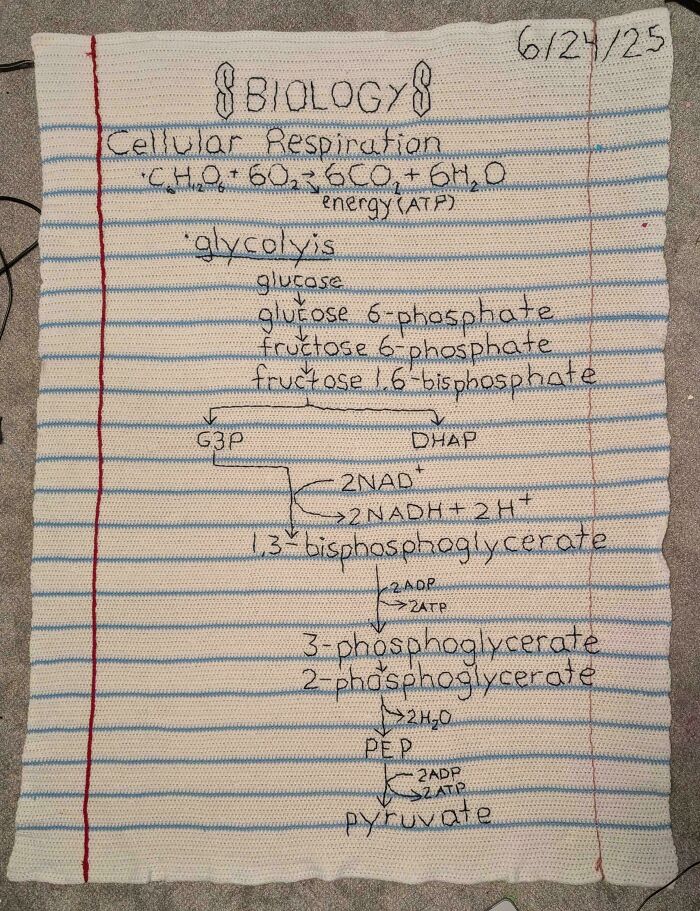 6/24/25
BIOLOGY
Cellular Respiration
·C₆H₁₂O₆ + 6O₂ → 6CO₂ + 6H₂O
energy (ATP)
·glycolyis
glucose
glucose 6-phosphate
fructose 6-phosphate
fructose 1,6-bisphosphate
G3P DHAP
2NAD⁺
2NADH + 2H⁺
1,3-bisphosphoglycerate
2ADP
2ATP
3-phosphoglycerate
2-phosphoglycerate
2H₂O
PEP
2ADP
2ATP
pyruvate